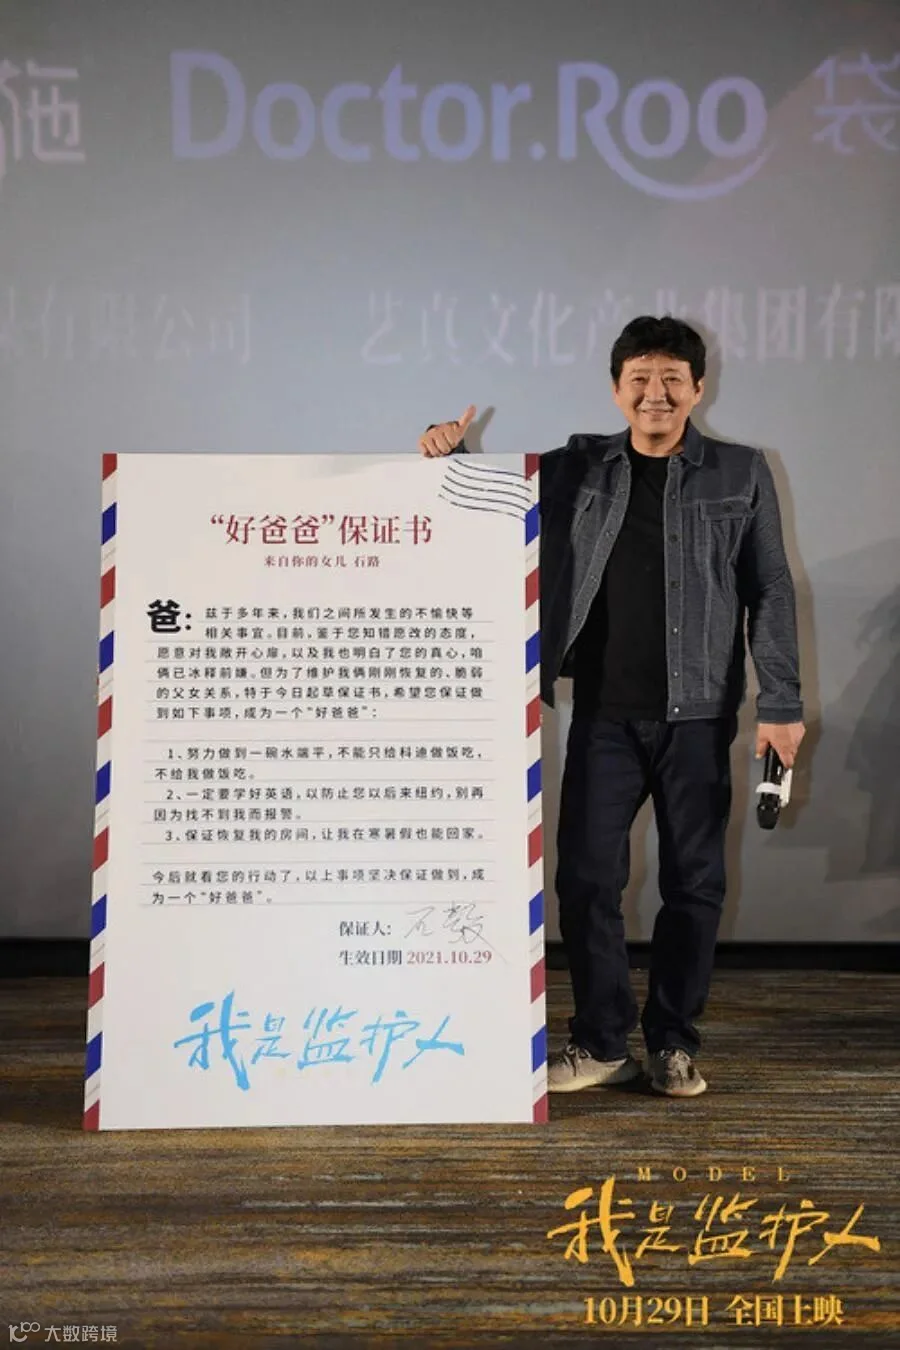 施 Doctor.Roo 袋
有限公司 艺真文化产业集团有限
“好爸爸”保证书
来自你的女儿 石路
爸：兹于多年来，我们之间所发生的不愉快等
相关事宜。目前，鉴于您知错愿改的态度，
愿意对我敞开心扉，以及我也明白了您的真心，咱
俩已冰释前嫌。但为了维护我俩刚刚恢复的、脆弱
的父女关系，特于今日起草保证书，希望您保证做
到如下事项，成为一个“好爸爸”：
1、努力做到一碗水端平，不能只给科迪做饭吃，
不给我做饭吃。
2、一定要学好英语，以防止您以后来纽约，别再
因为找不到我而报警。
3、保证恢复我的房间，让我在寒暑假也能回家。
今后就看您的行动了，以上事项坚决保证做到，成
为一个“好爸爸”。
保证人：石毅
生效日期 2021.10.29
我是监护人
MODEL
我是监护人
10月29日 全国上映
大数跨境